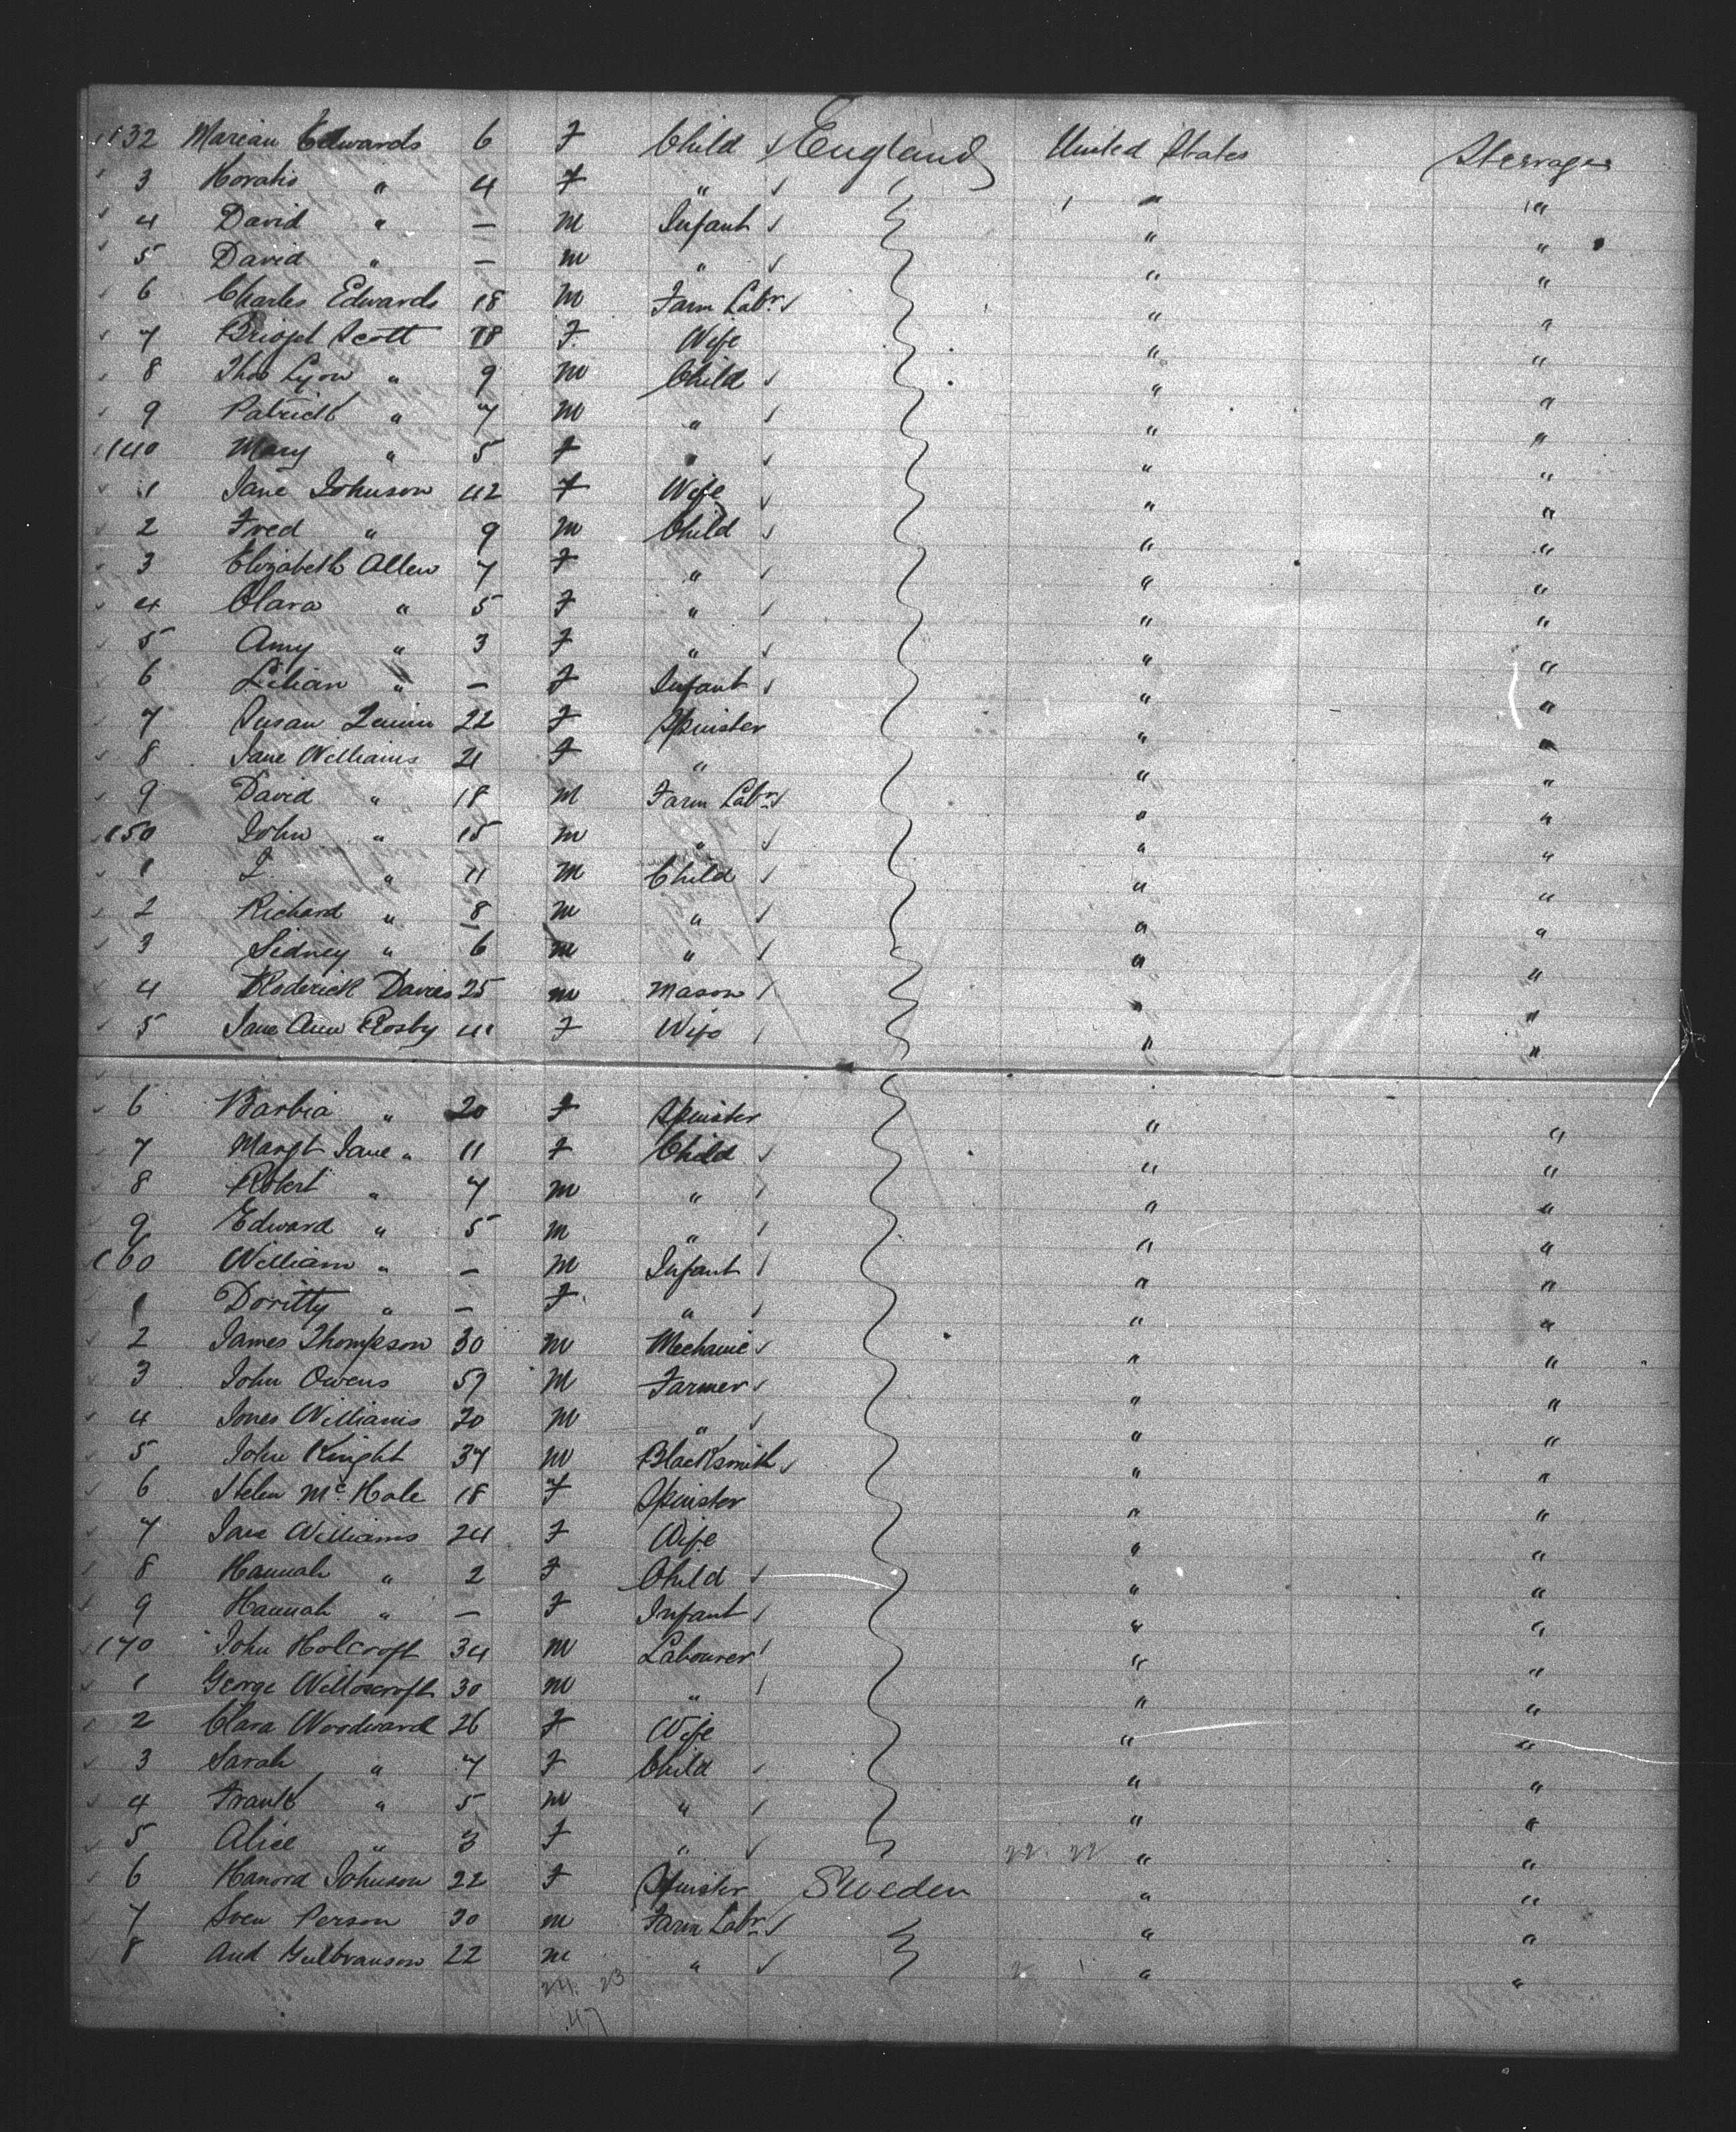 132 Marian Edwards 6 F Child England United States Steerage
3 Horatio " 4 F " " "
4 David " — M Infant " "
5 David " — M " " "
6 Charles Edwards 18 M Farm Labr " "
7 Bridget Scott 28 F Wife " "
8 Thos Lyon " 9 M Child " "
9 Patrick " 7 M " " "
140 Mary " 5 F " " "
1 Jane Johnson 42 F Wife " "
2 Fred " 9 M Child " "
3 Elizabeth Allen 7 F " " "
4 Clara " 5 F " " "
5 Amy " 3 F " " "
6 Lilian " — F Infant " "
7 Susan Quinn 22 F Spinster " "
8 Jane Williams 21 F " " "
9 David " 18 M Farm Labr " "
150 John " 15 M " " "
1 " 11 M Child " "
2 Richard " 8 M " " "
3 Sidney " 6 M " " "
4 Roderick Davies 25 M Mason " "
5 Jane Ann Rosby 41 F Wife " "
6 Barbia " 20 F Spinster " "
7 Margt Jane " 11 F Child " "
8 Robert " 7 M " " "
9 Edward " 5 M " " "
160 William " — M Infant " "
1 Doritty " — F " " "
2 James Thompson 30 M Mechanic " "
3 John Owens 57 M Farmer " "
4 Jones Williams 20 M " " "
5 John Knight 37 M Blacksmith " "
6 Helen Mc Hale 18 F Spinster " "
7 Jane Williams 24 F Wife " "
8 Hannah " 2 F Child " "
9 Hannah " — F Infant " "
170 John Holcroft 34 M Labourer " "
1 George 30 M " " "
2 Clara Woodward 26 F Wife " "
3 Sarah " 7 F Child " "
4 Frank " 5 M " " "
5 Alice " 3 F " 22 22 " "
6 Hanora Johnson 22 F Spinster Sweden " "
7 Sven Person 30 M Farm Labr " "
8 And Gulbranson 22 M " " "
24 23
47